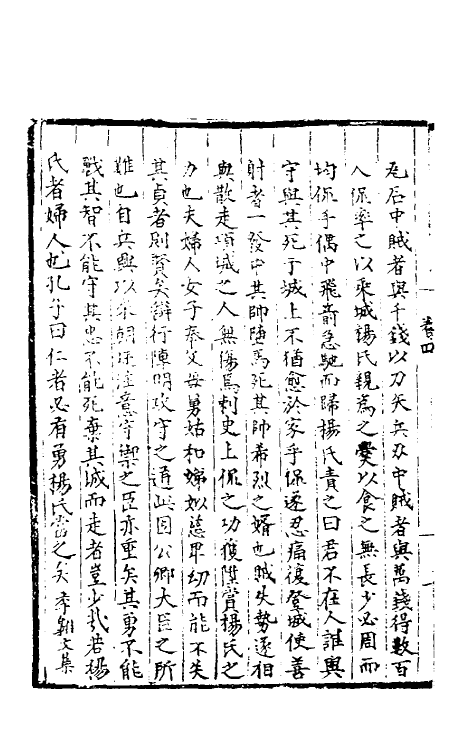 卷四
瓦石中賊者與千錢以刀矢兵刃中賊者與萬錢得數百
人侃率之以乘城楊氏親為之爨以食之無長少必周而
均侃手偶中飛箭急馳而歸楊氏責之曰君不在人誰與
守與其死于城上不猶愈於家乎侃遂忍痛復登城使善
射者一發中其帥墮馬死其帥希烈之婿也賊失勢遂相
與散走項城之人無傷焉刺史上侃之功獲隕賞楊氏之
力也夫婦人女子奉父母舅姑和娣姒慈卑幼而能不失
其貞者則賢矣辨行陣明攻守之通此固公卿大臣之所
難也自兵興以來朝廷注意守禦之臣亦重矣其勇不能
戰其智不能守其忠不能死棄其城而走者豈少哉若楊
氏者婦人也孔子曰仁者必有勇楊氏當之矣李翱文集